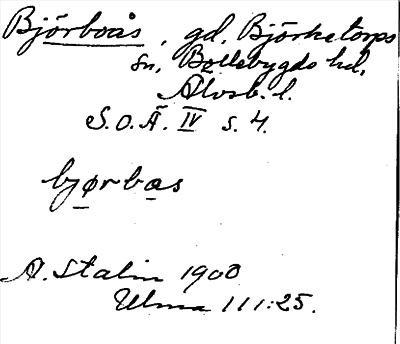 Björboås, gd, Björketorps
sn, Bollebygds hd,
Älvsb. l.
S.O.Ä. IV s. 4.
bjørbas
A. Stalin 1900
Ulma 111:25.